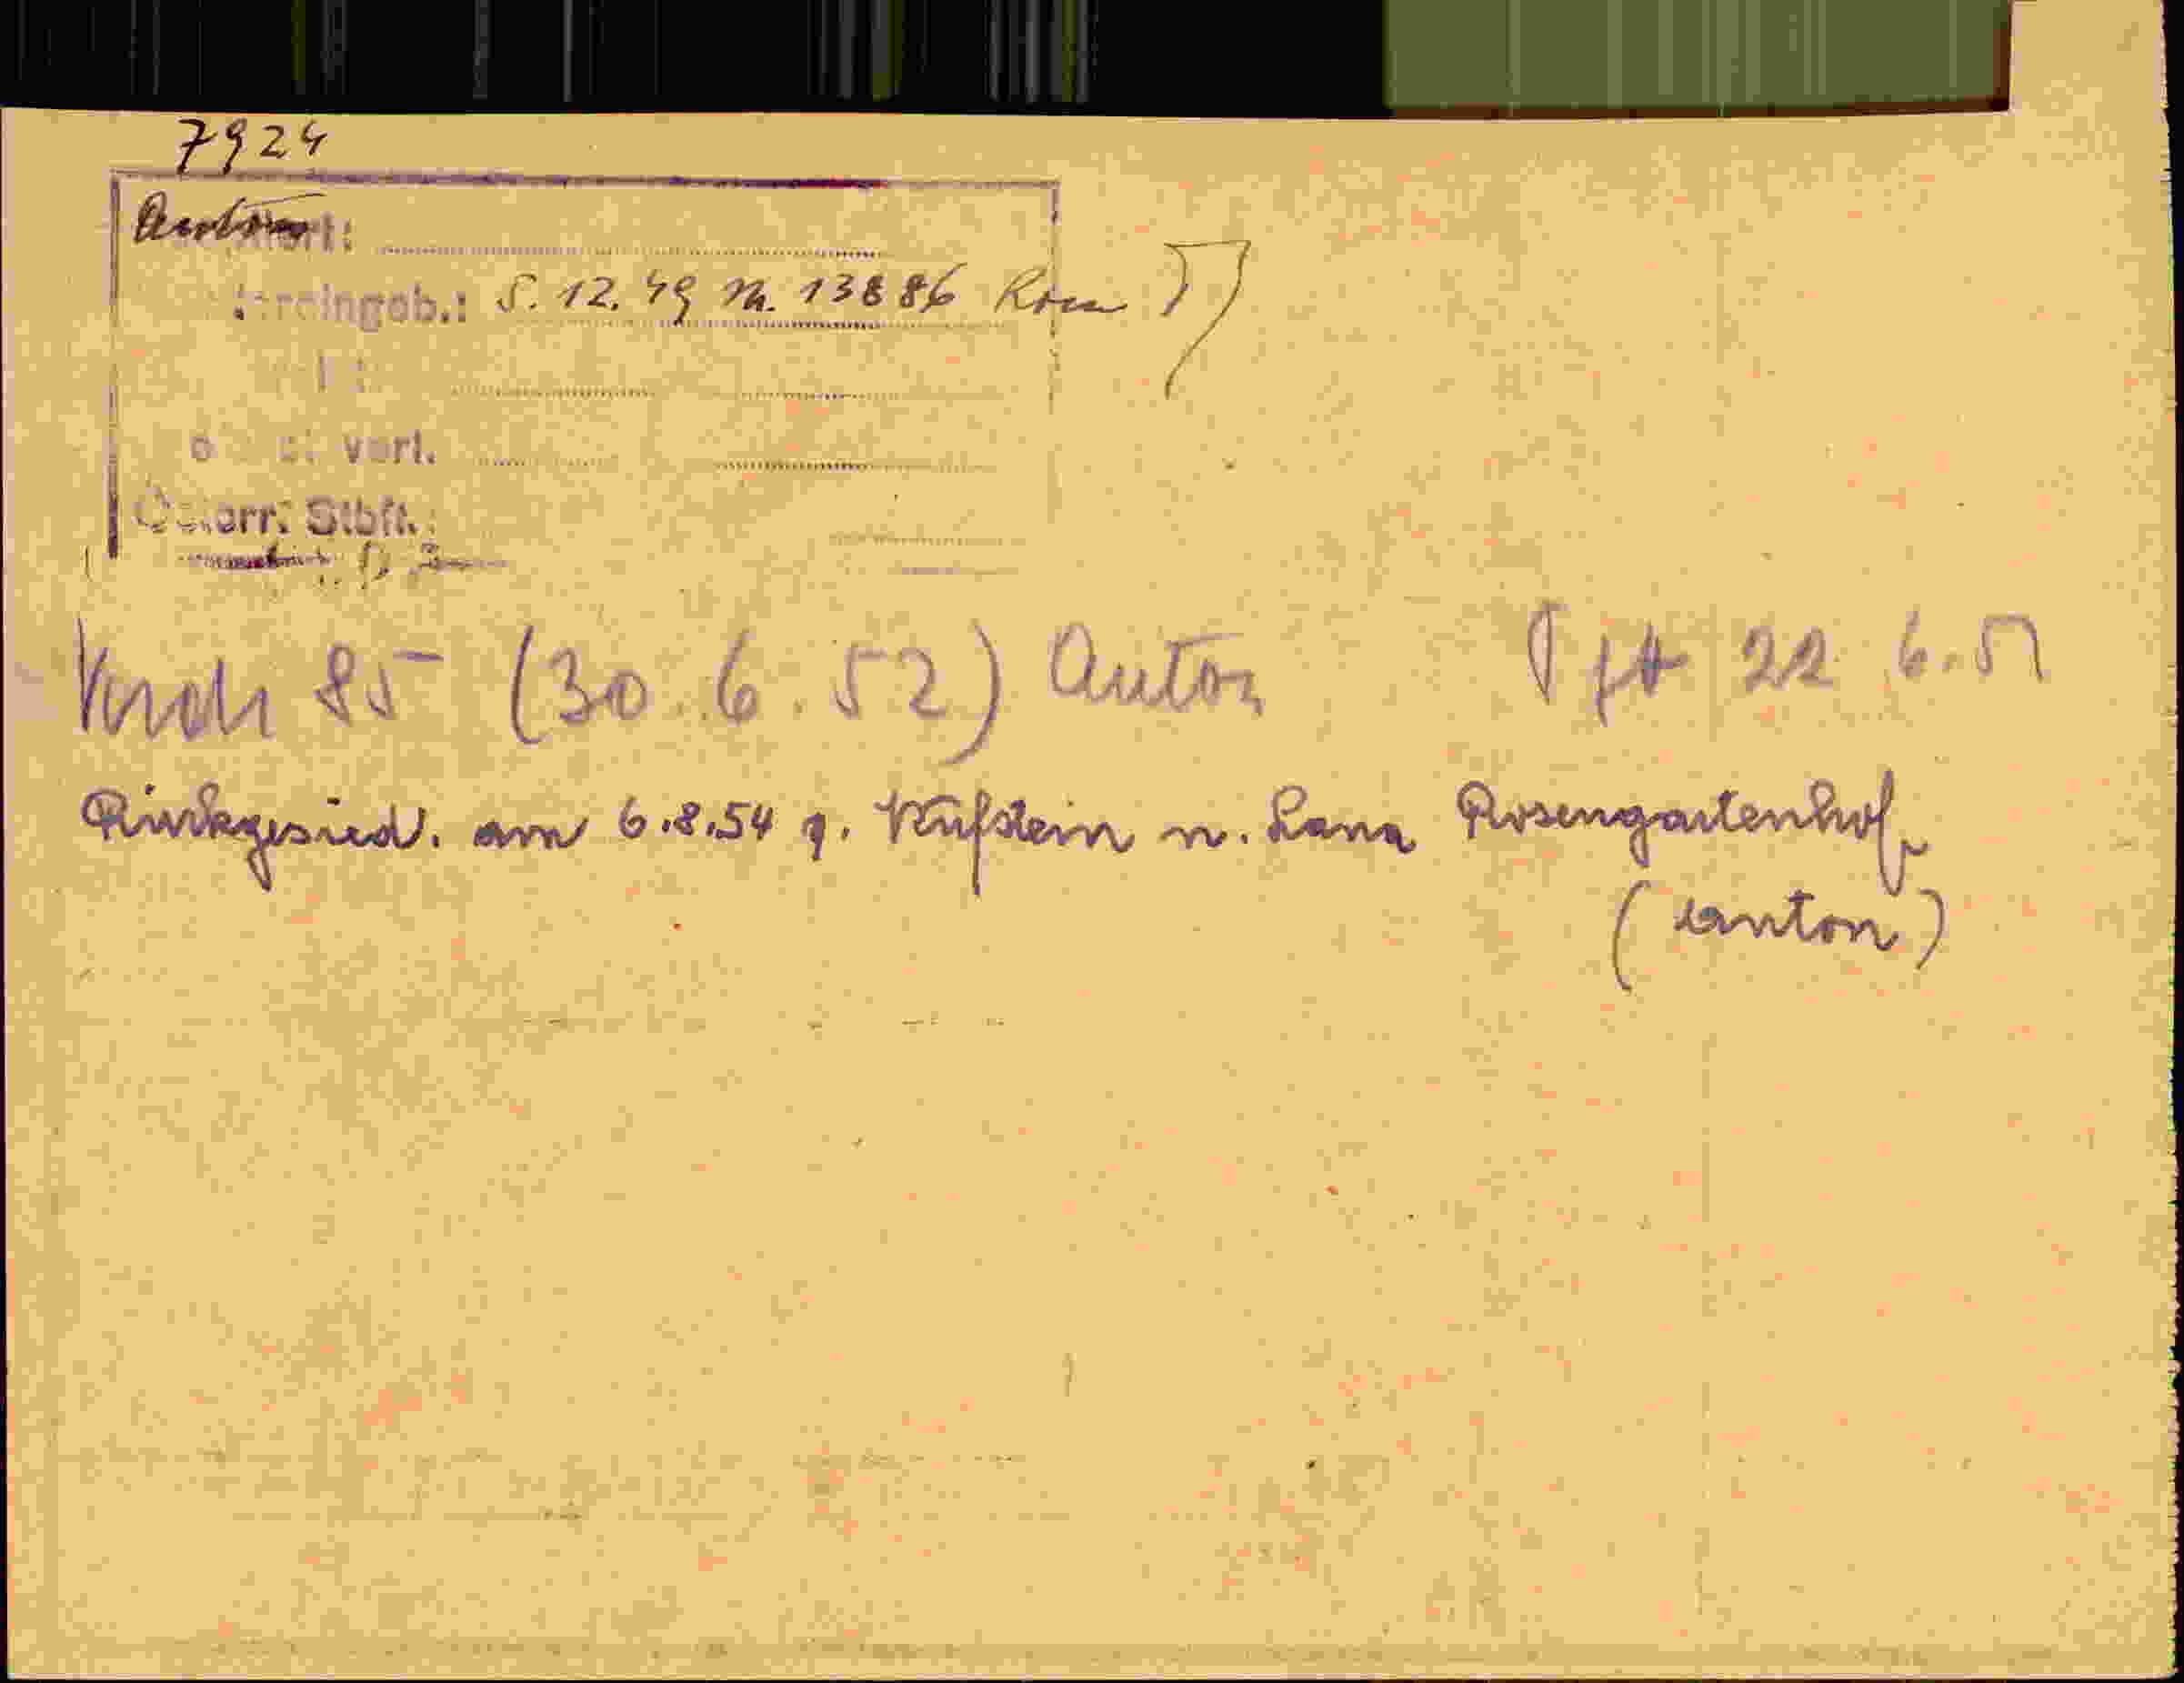 7924
Anton
S. 12. 49 Nr. 13886 Rom
verl.
Österr. Stbft.:
85 (30.6.52) Anton 22 6.51
Rückgesied. am 6.8.54 q. Kufstein n. Lana Rosengartenhof
(Anton)